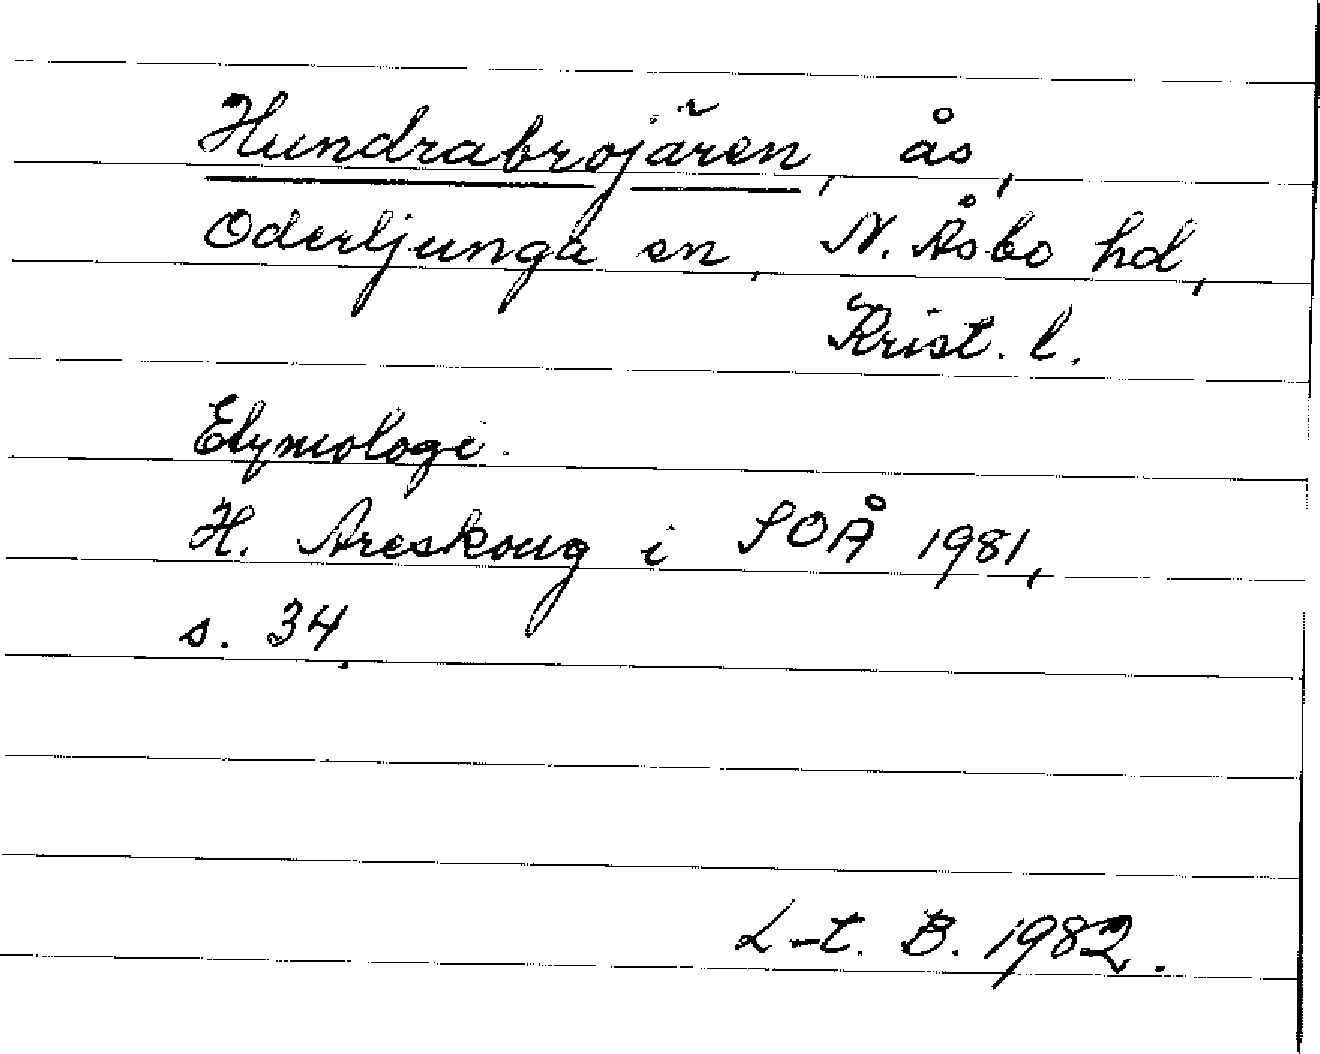 Hundrabrojären, ås,
Oderljunga sn, N. Åsbo hd,
Krist. l.
Etymologi.
H. Areskoug i SOÅ 1981,
s. 34.
L-t. B. 1982.